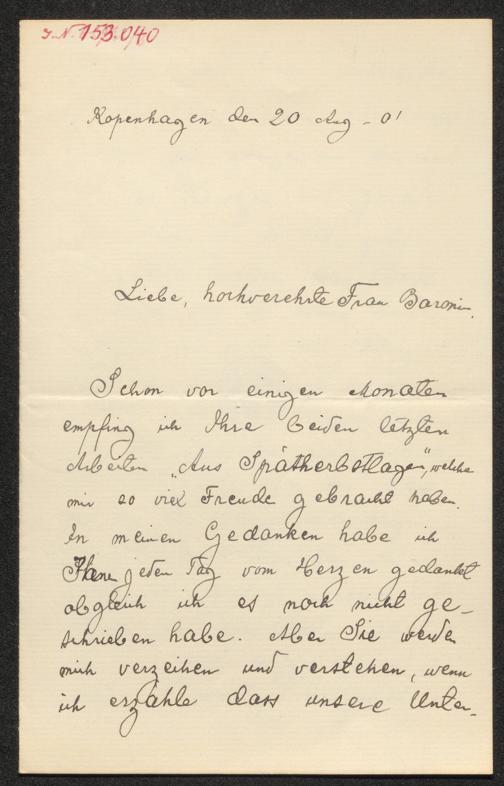 I.N. 153.040
Kopenhagen den 20 Aug - 01
Liebe, hochverehrte Frau Baronin,
Schon vor einigen Monaten
empfing ich Ihre beiden letzten
Arbeiten „Aus Spätherbsttagen", welche
mir so viel Freude gebracht haben.
In meinen Gedanken habe ich
Ihnen jeden Tag vom Herzen gedankt
obgleich ich es noch nicht ge-
schrieben habe. Aber Sie werden
mich verzeihen und verstehen, wenn
ich erzähle dass unsere Unter-